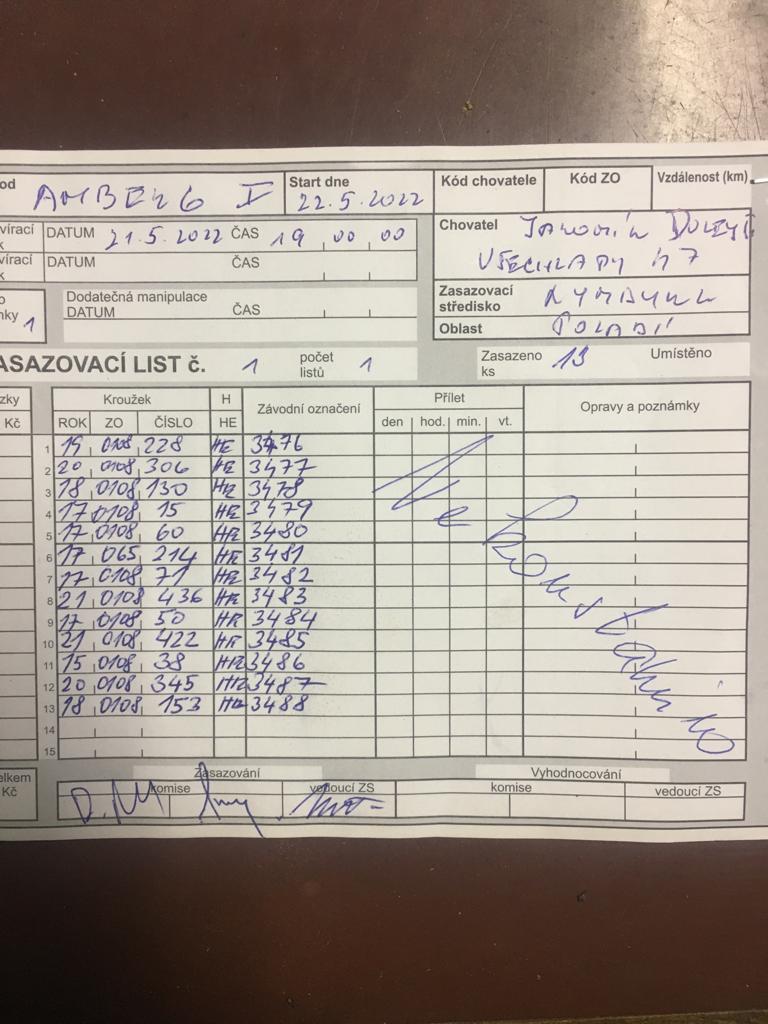 od AMBERG I Start dne 22.5.2022 Kód chovatele Kód ZO Vzdálenost (km)
vírací k DATUM 21.5.2022 ČAS 19 00 00 Chovatel Jaromír
vírací k DATUM ČAS VŠECHLAPY 47
o nky 1 Dodatečná manipulace DATUM ČAS Zasazovací středisko
Oblast POLABÍ
ASAZOVACÍ LIST č. 1 počet listů 1 Zasazeno ks 13 Umístěno
zky Kroužek H Závodní označení Přílet Opravy a poznámky
Kč ROK ZO ČÍSLO HE den hod. min. vt.
1 19 0108 228 HE 3476
2 20 0108 306 HE 3477
3 18 0108 130 HE 3478
4 17 0108 15 HE 3479
5 17 0108 60 HE 3480
6 17 065 214 HE 3481
7 17 0108 71 HE 3482
8 21 0108 436 HE 3483
9 17 0108 50 HE 3484
10 21 0108 422 HE 3485
11 15 0108 38 HE 3486
12 20 0108 345 HE 3487
13 18 0108 153 HE 3488
14
15
Nekonstatováno
elkem Kč Zasazování Vyhodnocování
komise vedoucí ZS komise vedoucí ZS